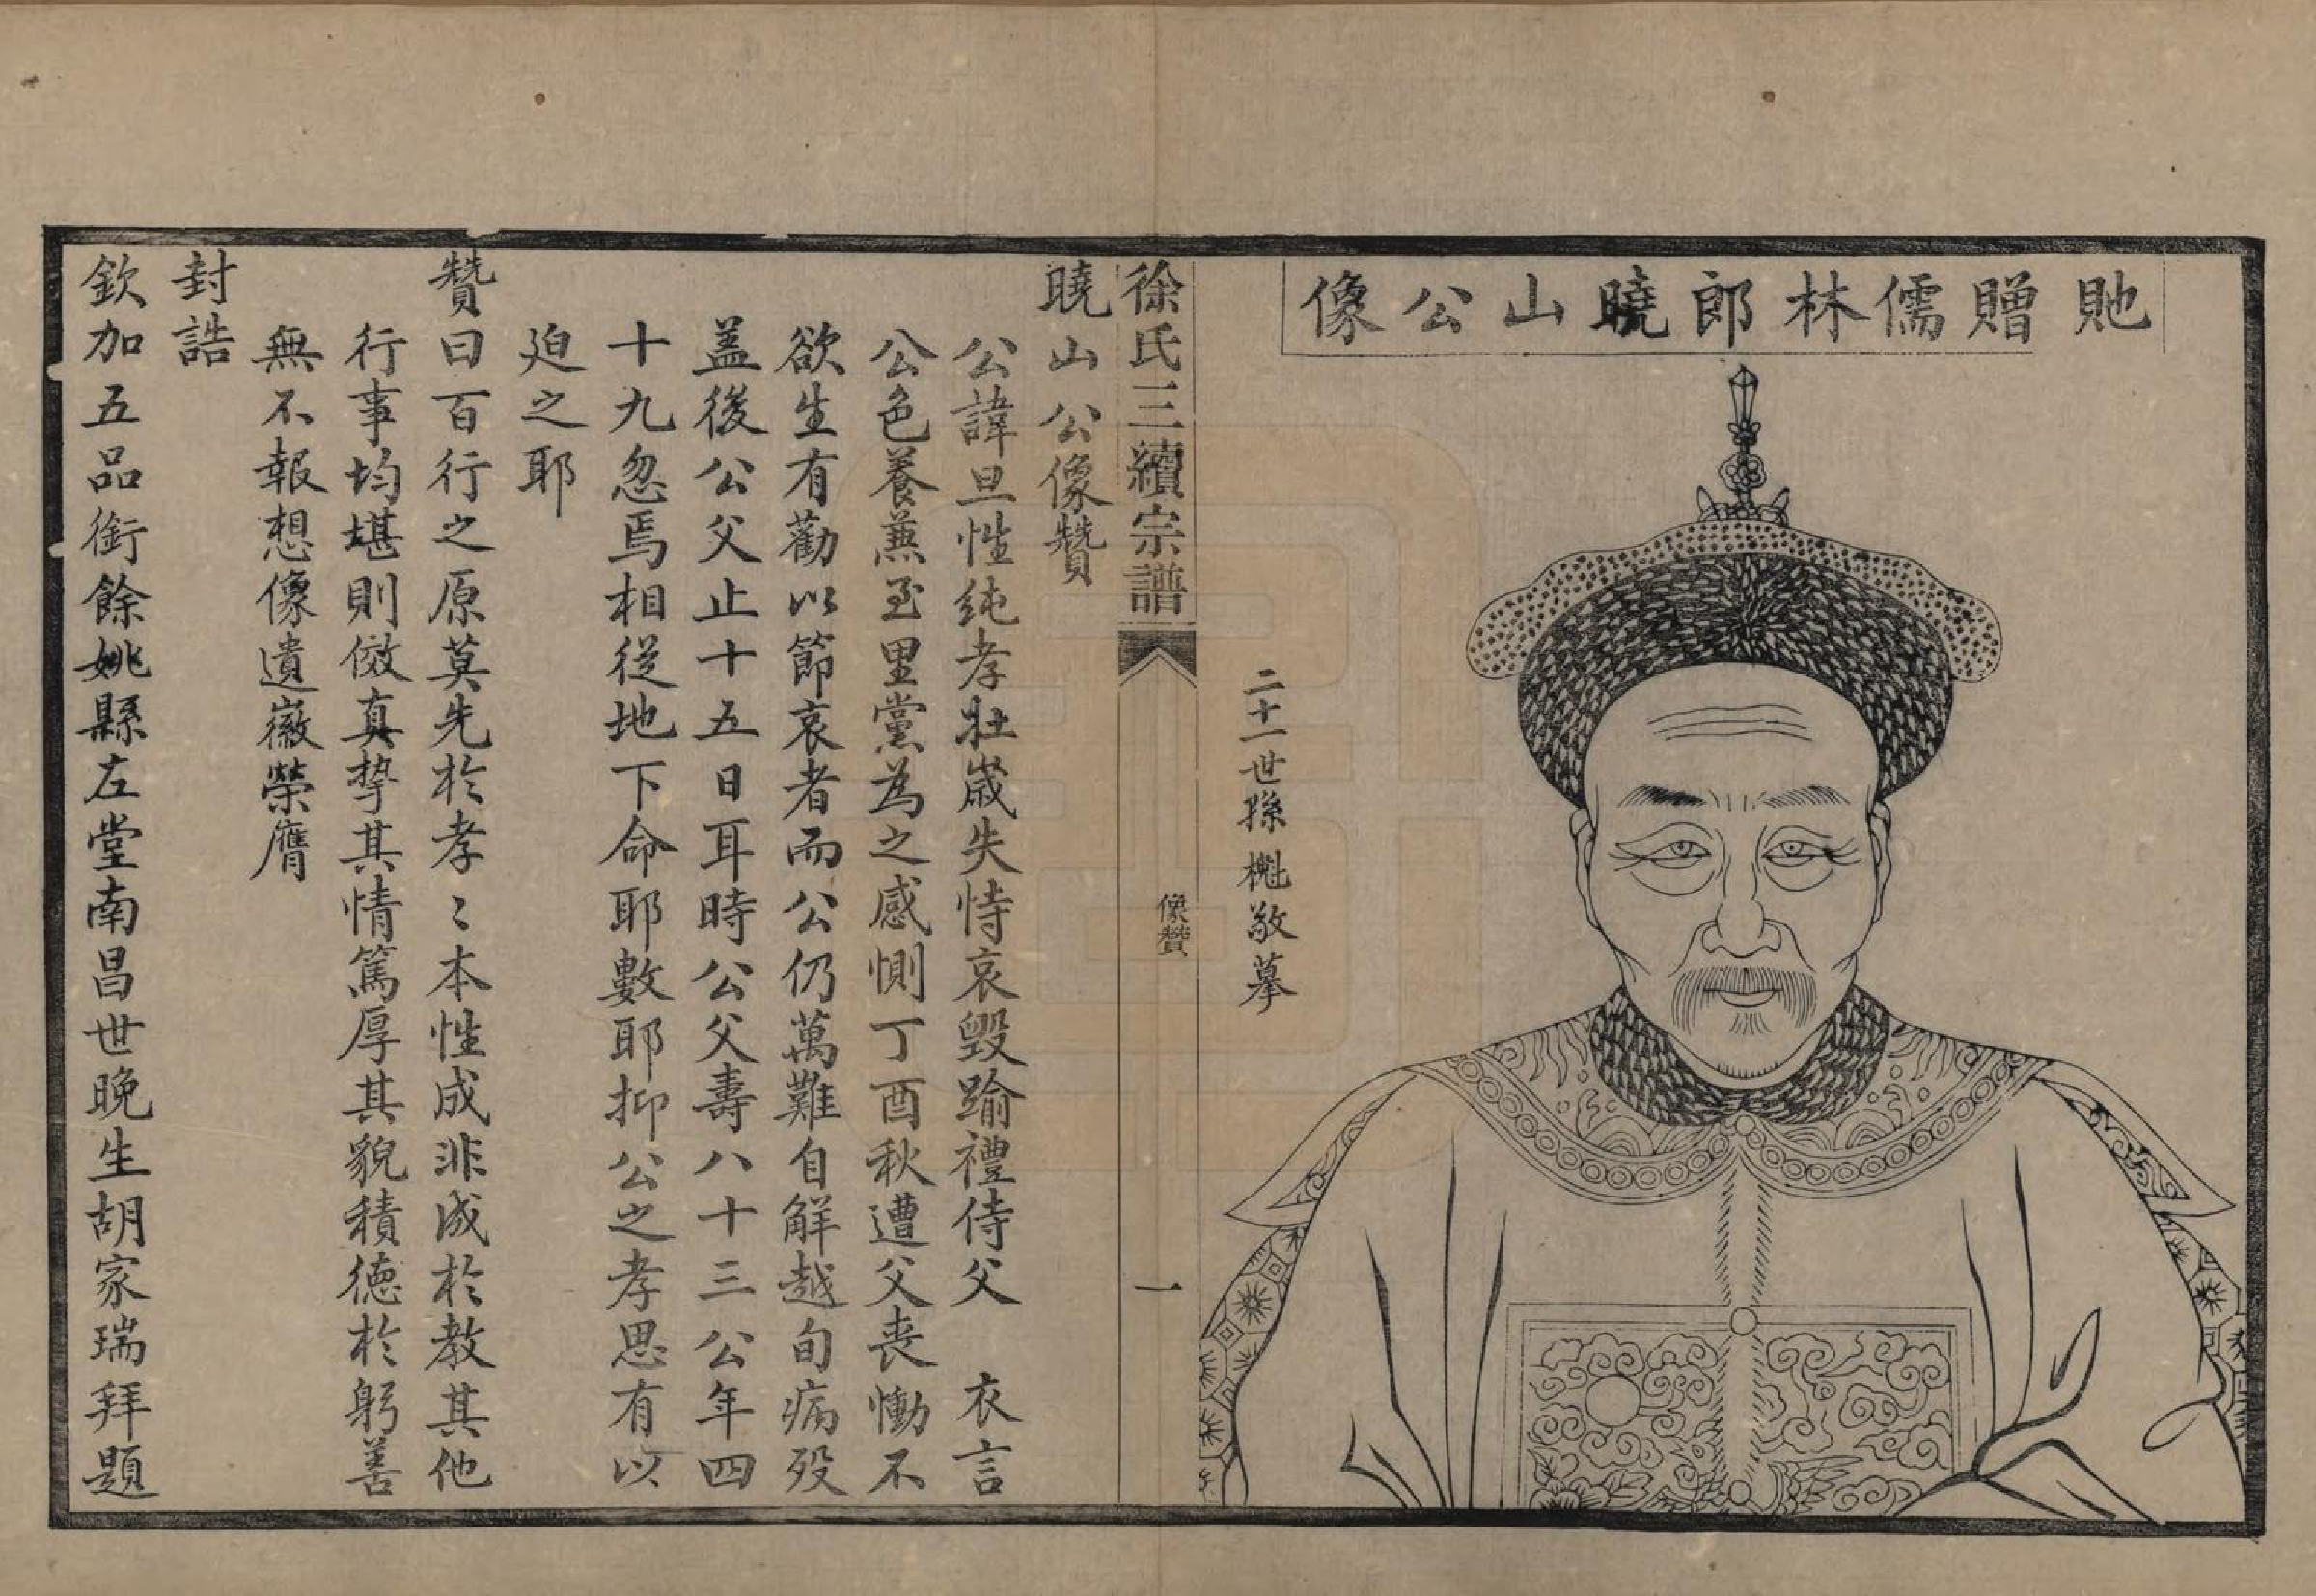 貤贈儒林郎曉山公像
二十一世孫櫆敬摹
徐氏三續宗譜
像贊
一
曉山公像贊
公諱旦性純孝壯歲失恃哀毀踰禮侍父 衣言
公色養兼至里黨為之感惻丁酉秋遭父喪慟不
欲生有勸以節哀者而公仍萬難自解越旬病歿
葢後公父止十五日耳時公父壽八十三公年四
十九忽焉相從地下命耶數耶抑公之孝思有以
迫之耶
贊曰百行之原莫先於孝〻本性成非成於教其他
行事均堪則傚真摯其情篤厚其貌積德於躬善
無不報想像遺徽榮膺
封誥
欽加五品銜餘姚縣左堂南昌世晚生胡家瑞拜題